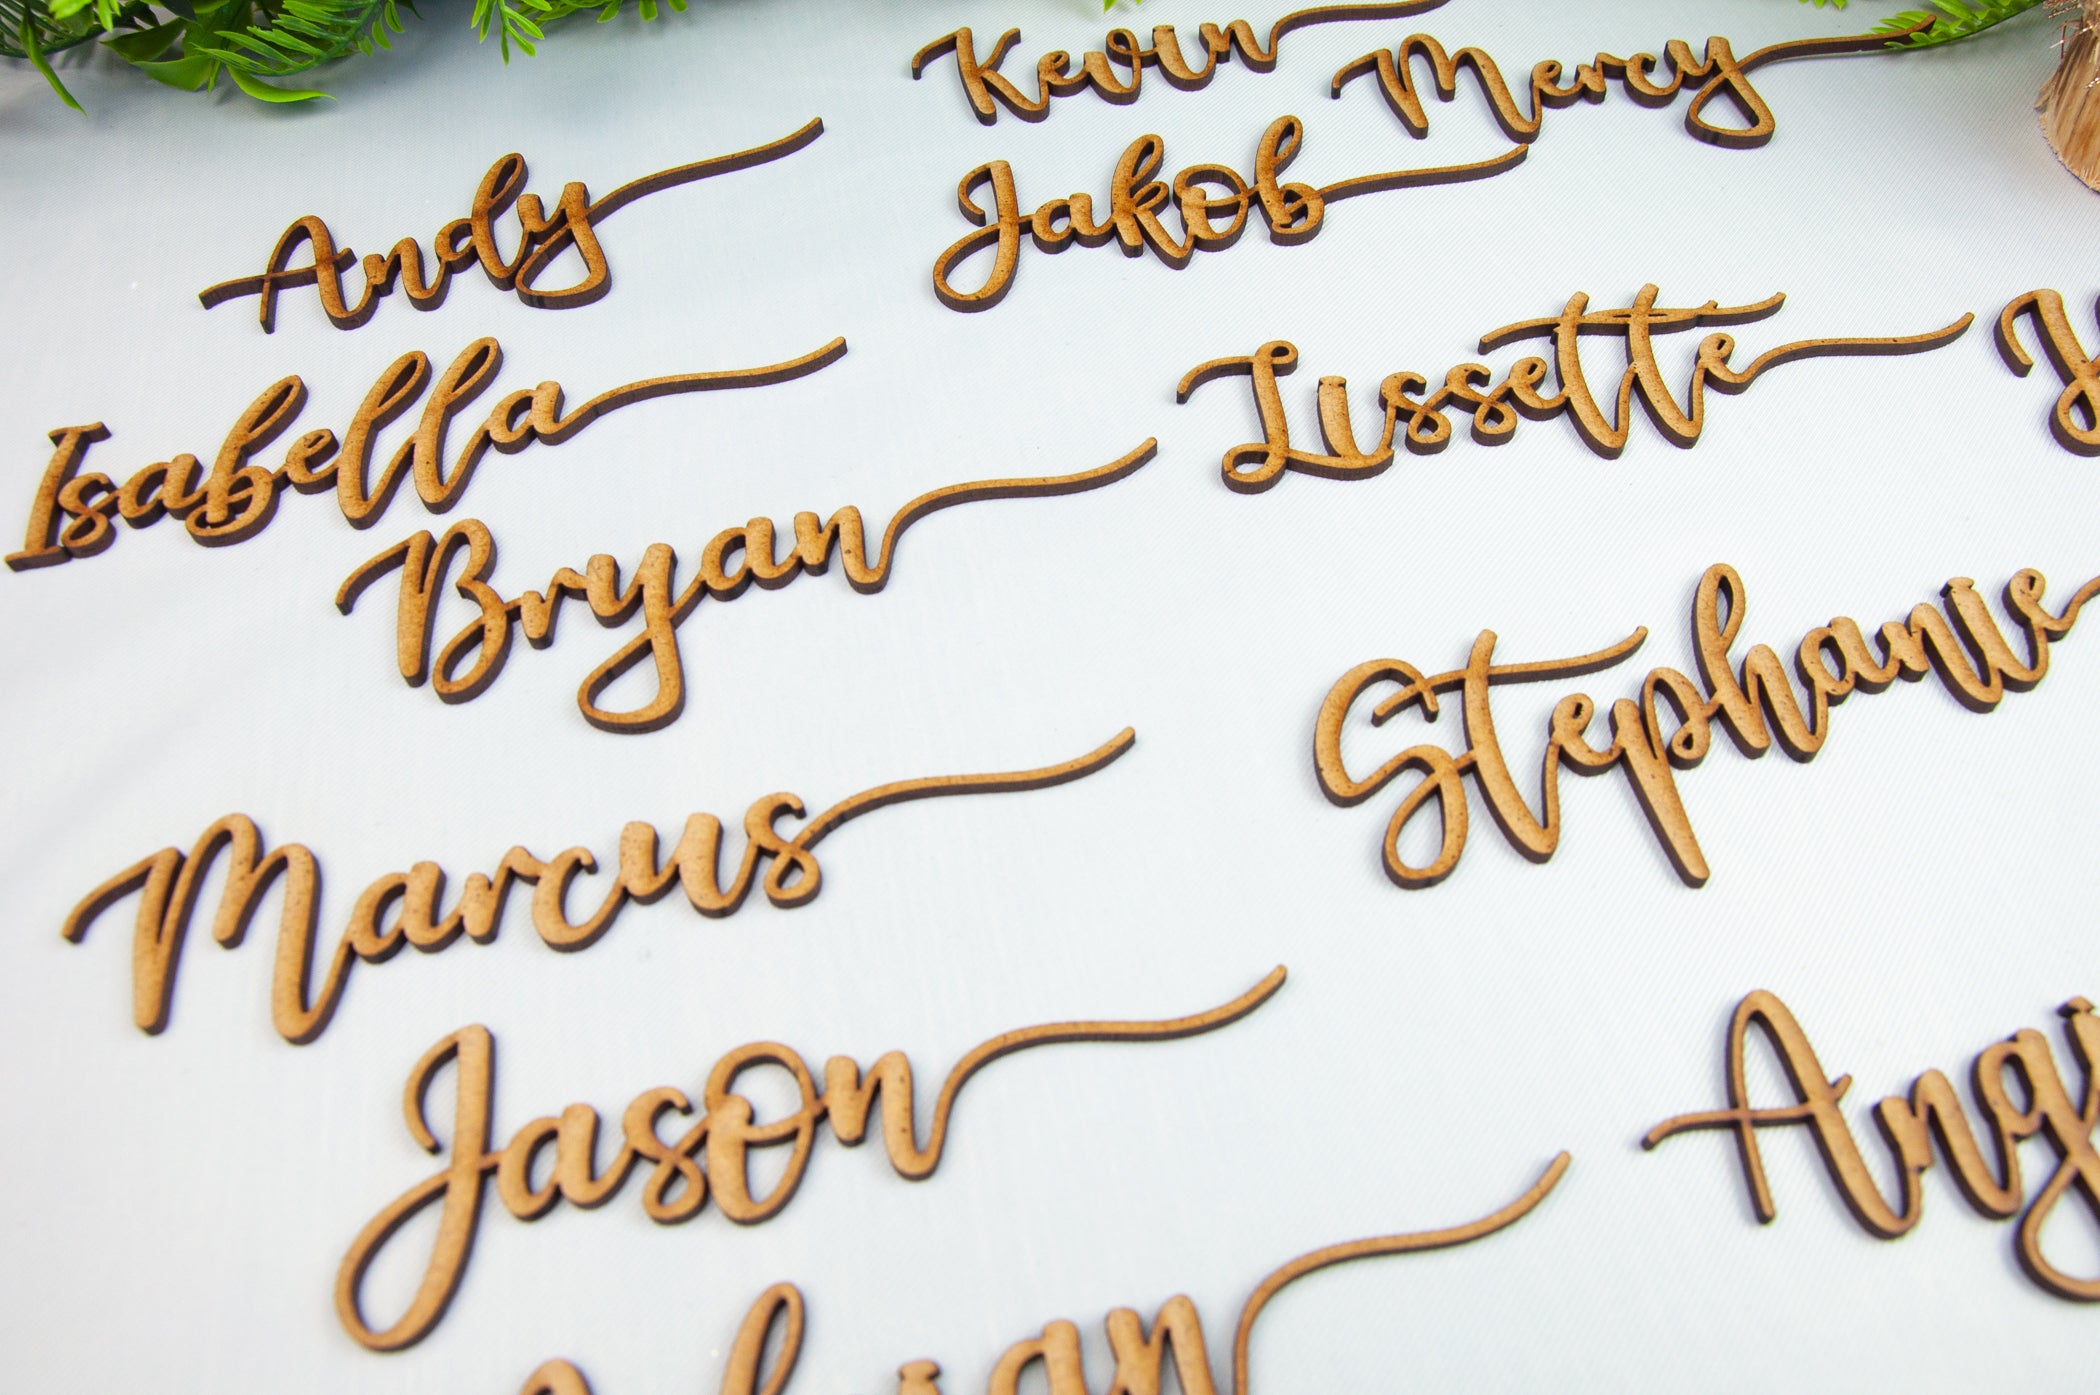 Kevin
Mercy
Andy
Jakob
Isabella
Lissette
Bryan
Stephanie
Marcus
Jason